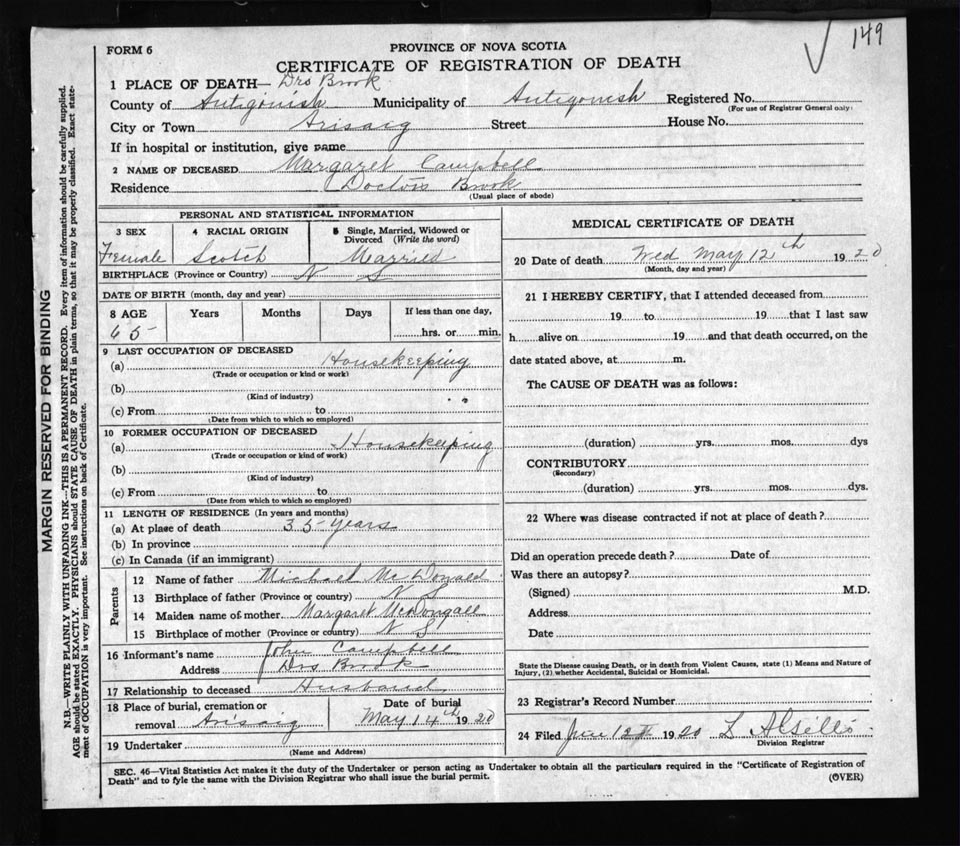 149
FORM 6
PROVINCE OF NOVA SCOTIA
CERTIFICATE OF REGISTRATION OF DEATH
1 PLACE OF DEATH— Drs Brook
County of Antigonish Municipality of Antigonish Registered No.
(For use of Registrar General only)
City or Town Arisaig Street House No.
If in hospital or institution, give name
2 NAME OF DECEASED Margaret Campbell
Residence Doctors Brook
(Usual place of abode)
PERSONAL AND STATISTICAL INFORMATION
3 SEX 4 RACIAL ORIGIN 5 Single, Married, Widowed or Divorced (Write the word)
Female Scotch Married
BIRTHPLACE (Province or Country) N S
DATE OF BIRTH (month, day and year)
8 AGE Years Months Days If less than one day,
65 hrs. or min.
9 LAST OCCUPATION OF DECEASED
(a) Housekeeping
(Trade or occupation or kind or work)
(b)
(Kind of industry)
(c) From to
(Date from which to which so employed)
10 FORMER OCCUPATION OF DECEASED
(a) Housekeeping
(Trade or occupation or kind of work)
(b)
(Kind of industry)
(c) From to
(Date from which to which so employed)
11 LENGTH OF RESIDENCE (In years and months)
(a) At place of death 35 years
(b) In province
(c) In Canada (if an immigrant)
Parents
12 Name of father Michael McDonald
13 Birthplace of father (Province or country) N S
14 Maiden name of mother Margaret McDougall
15 Birthplace of mother (Province or country) N S
16 Informant's name John Campbell
Address Drs Brook
17 Relationship to deceased Husband
18 Place of burial, cremation or removal Arisaig
Date of burial
May 14th 1920
19 Undertaker
(Name and Address)
MEDICAL CERTIFICATE OF DEATH
20 Date of death Wed May 12th 1920
(Month, day and year)
21 I HEREBY CERTIFY, that I attended deceased from
19 to 19 that I last saw
h alive on 19 and that death occurred, on the
date stated above, at m.
The CAUSE OF DEATH was as follows:
(duration) yrs. mos. dys
CONTRIBUTORY
(Secondary)
(duration) yrs. mos. dys.
22 Where was disease contracted if not at place of death?
Did an operation precede death? Date of
Was there an autopsy?
(Signed) M.D.
Address
Date
State the Disease causing Death, or in death from Violent Causes, state (1) Means and Nature of
Injury, (2) whether Accidental, Suicidal or Homicidal.
23 Registrar's Record Number
24 Filed June 12th 1920 L A Gillis
Division Registrar
SEC. 46—Vital Statistics Act makes it the duty of the Undertaker or person acting as Undertaker to obtain all the particulars required in the "Certificate of Registration of
Death" and to fyle the same with the Division Registrar who shall issue the burial permit.
(OVER)
MARGIN RESERVED FOR BINDING
N.B.—WRITE PLAINLY WITH UNFADING INK—THIS IS A PERMANENT RECORD. Every item of information should be carefully supplied.
AGE should be stated EXACTLY. PHYSICIANS should STATE CAUSE OF DEATH in plain terms, so that it may be properly classified. Exact state-
ment of OCCUPATION is very important. See instructions on back of Certificate.